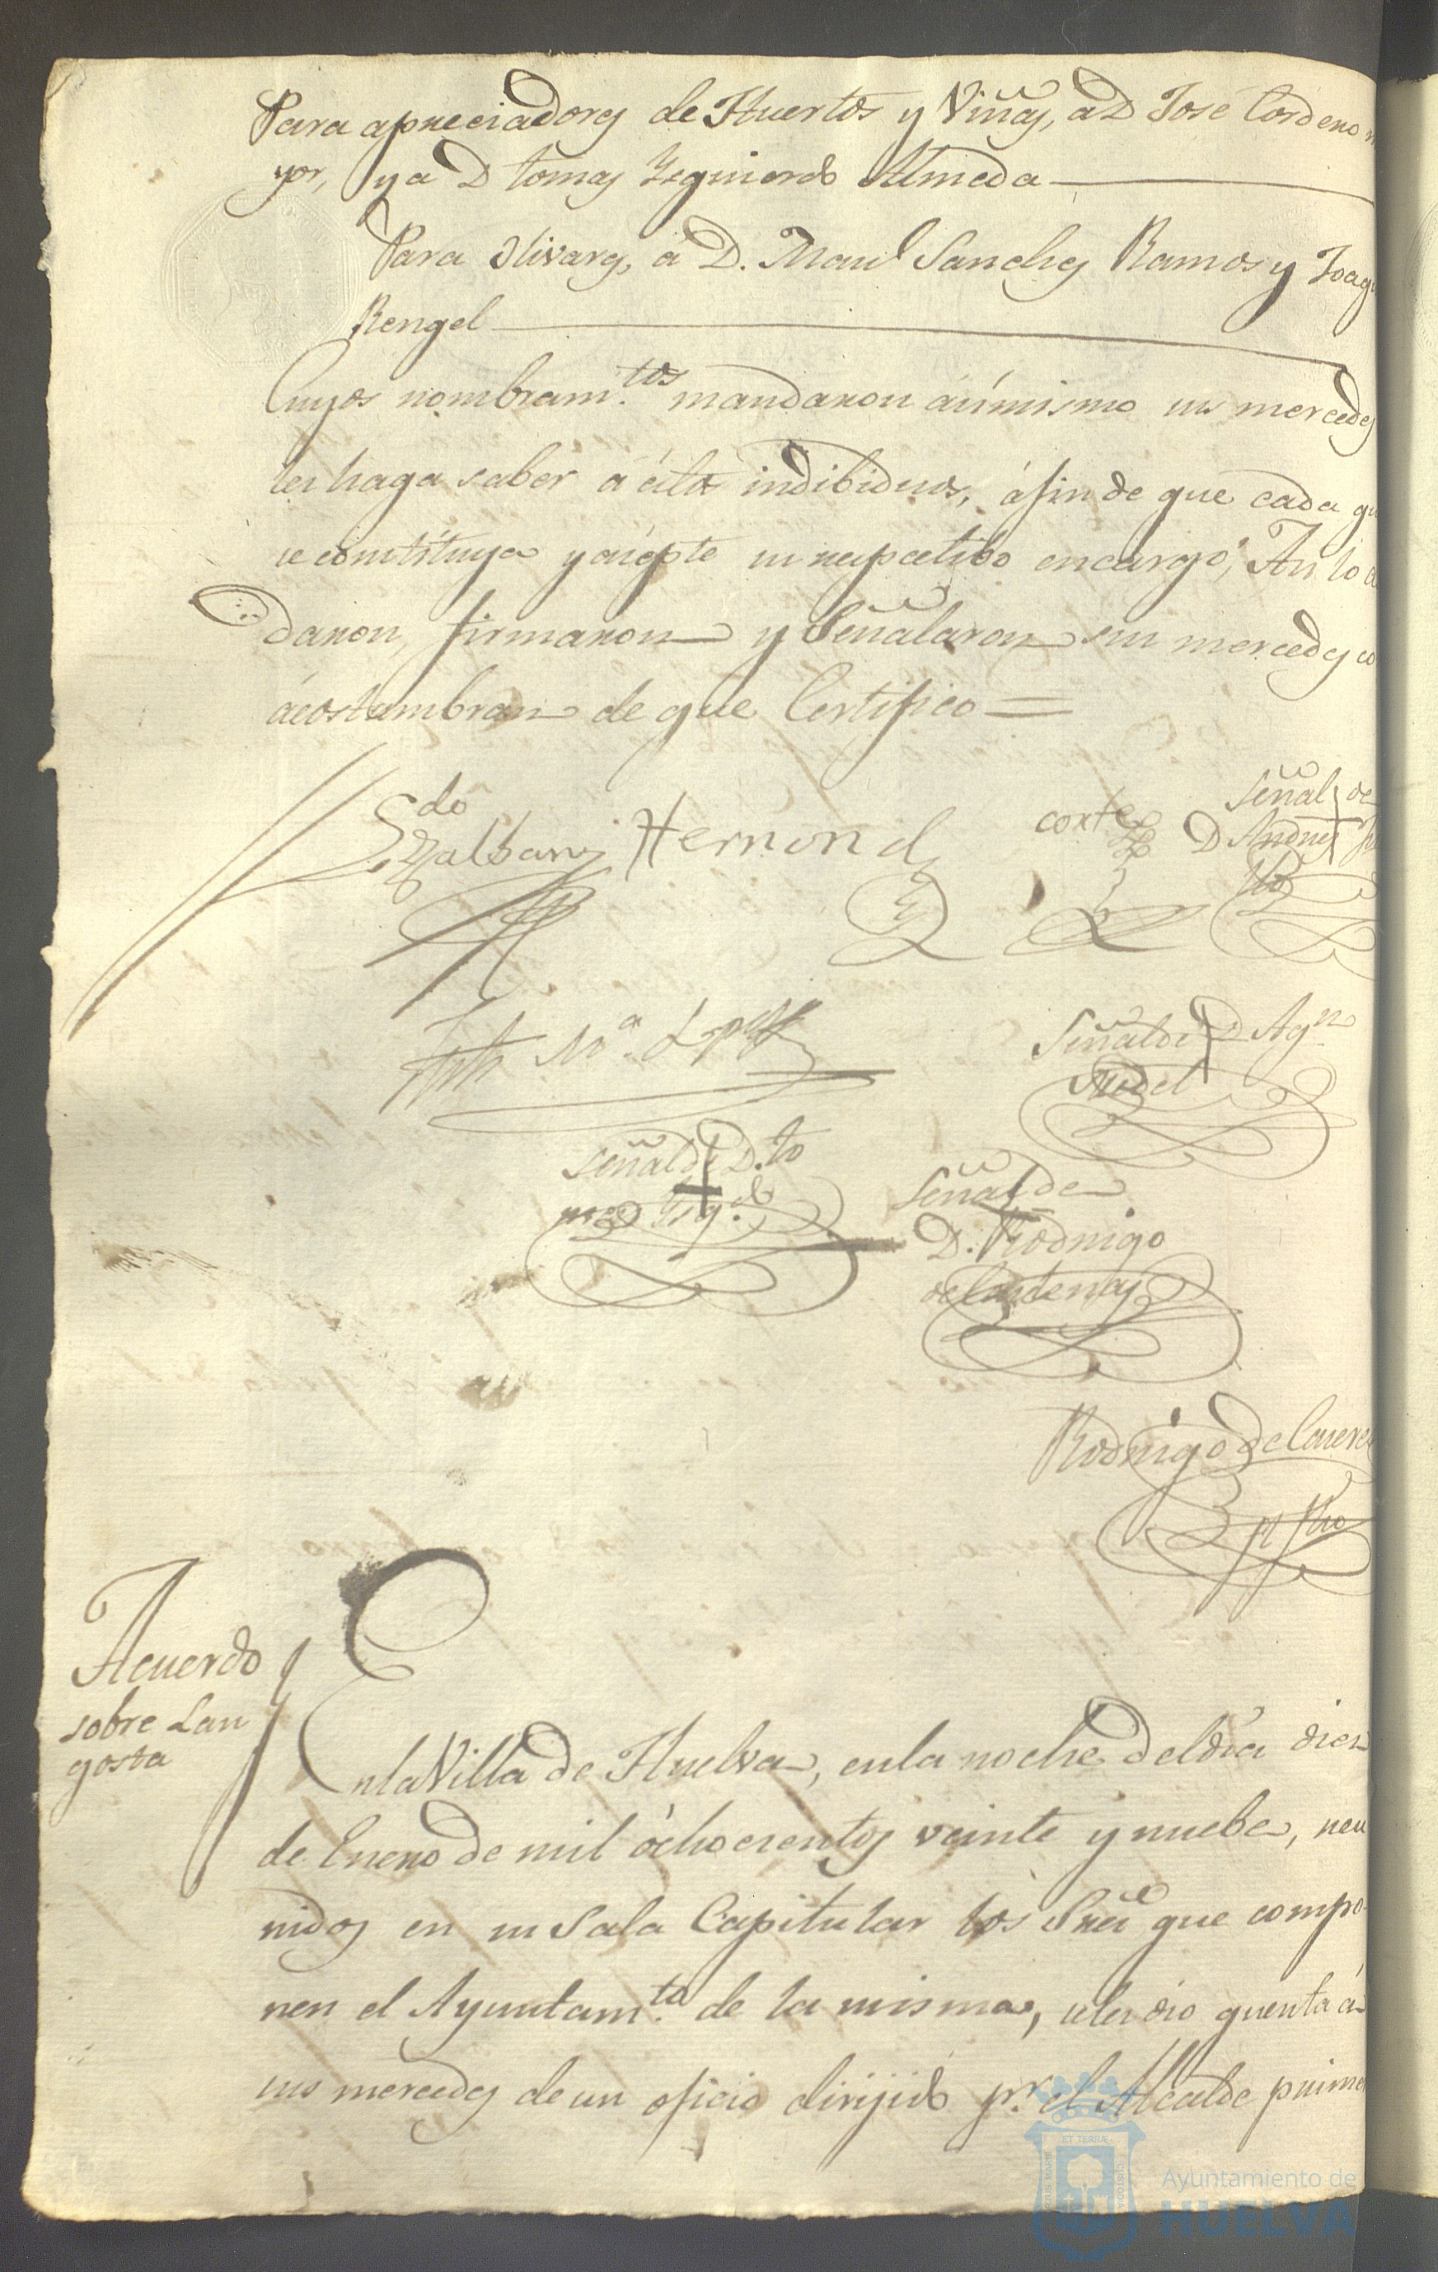 Para apreciadores de Huertos y Viñas, a D José Cordero m
yor, y a D tomas Izquierdo Almeda
Para Olivares, á D. Manl Sanches Ramos y Joaqu
Rengel
Cuyos nombram.tos mandaron ásimismo sus mercedes
les haga saber a éstos indibiduos, áfin de que cada qu
se constituya y aczepte su respectibo encargo, Asi lo a
daron, firmaron y Señalaron sus mercedes co
ácostumbran de que Certifico =
Ldo
Zalbariz Hernand
corte
Señal de
D Andres
M.a Lopez
Señal de D Agn
Señal de D. to
mas Izq.do
Señal de
D. Rodrigo
de Cardenas
Rodrigo de
Acuerdo
sobre Lan
gosta
En la Villa de Huelva, en la noche del día diez
de Enero de mil óchocientos veinte y nuebe, reu
nidos en su Sala Capitular los Sres que compo-
nen el Ayuntam.to de la misma, seles dio quenta á
sus mercedes de un oficio dirijido pr. el Alcalde prime
ET TERRÆ
Ayuntamiento de
HUELVA